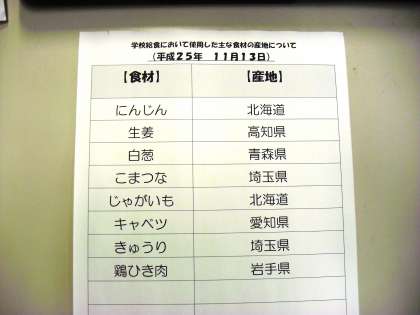 学校給食において使用した主な食材の産地について
（平成２５年　１１月１３日）
【食材】　【産地】
にんじん　北海道
生姜　高知県
白葱　青森県
こまつな　埼玉県
じゃがいも　北海道
キャベツ　愛知県
きゅうり　埼玉県
鶏ひき肉　岩手県